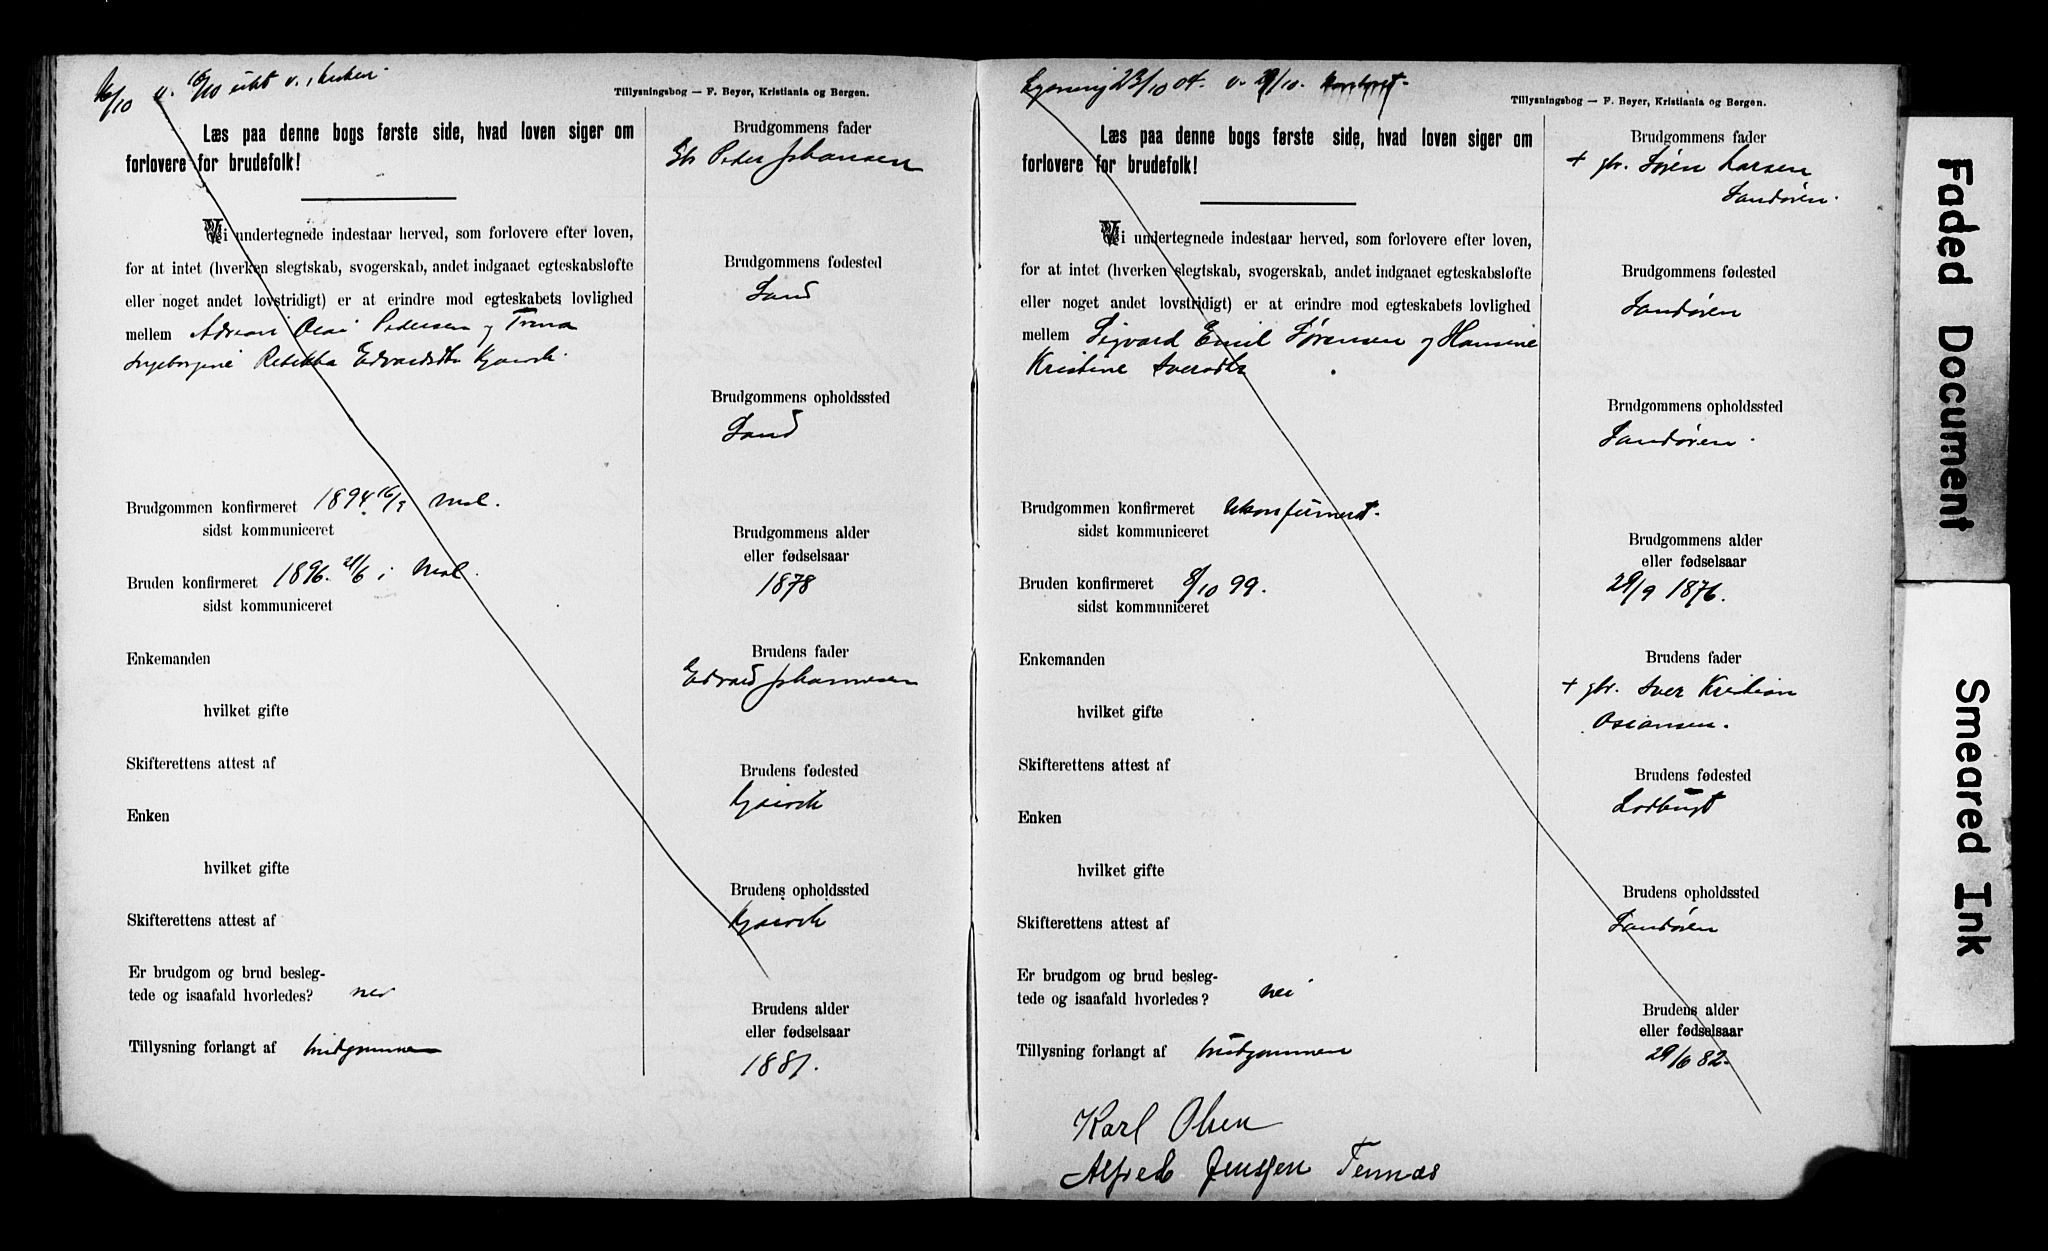 Tillysningsbog — F. Beyer, Kristiania og Bergen.
Læs paa denne bogs første side, hvad loven siger om
forlovere for brudefolk!
Vi undertegnede indestaar herved, som forlovere efter loven,
for at intet (hverken slegtskab, svogerskab, andet indgaaet egteskabsløfte
eller noget andet lovstridigt) er at erindre mod egteskabets lovlighed
mellem Adrian Olai Pedersen og Trina
Ingeborgine Rebekka Edvardsdtr
Brudgommen konfirmeret 1894 16/9
sidst kommuniceret
Bruden konfirmeret 1896. 21/6 i
sidst kommuniceret
Enkemanden
hvilket gifte
Skifterettens attest af
Enken
hvilket gifte
Skifterettens attest af
Er brudgom og brud besleg-
tede og isaafald hvorledes? nei
Tillysning forlangt af brudgommen
Brudgommens fader
Peder Johansen
Brudgommens fødested
Sand
Brudgommens opholdssted
Sand
Brudgommens alder
eller fødselsaar
1878
Brudens fader
Edvard Johannesen
Brudens fødested
Brudens opholdssted
Brudens alder
eller fødselsaar
1881.
Lysning 23/10 04.
Tillysningsbog — F. Beyer, Kristiania og Bergen.
Læs paa denne bogs første side, hvad loven siger om
forlovere for brudefolk!
Vi undertegnede indestaar herved, som forlovere efter loven,
for at intet (hverken slegtskab, svogerskab, andet indgaaet egteskabsløfte
eller noget andet lovstridigt) er at erindre mod egteskabets lovlighed
mellem Sigvard Emil Sørensen og Hansine
Kristine Iversdtr
Brudgommen konfirmeret Ukonfirmeret.
sidst kommuniceret
Bruden konfirmeret 8/10 99.
sidst kommuniceret
Enkemanden
hvilket gifte
Skifterettens attest af
Enken
hvilket gifte
Skifterettens attest af
Er brudgom og brud besleg-
tede og isaafald hvorledes? nei
Tillysning forlangt af brudgommen
Karl Olsen
Alfred Jenssen Tennæs
Brudgommens fader
+ gbr. Søren Larsen
Sandøren.
Brudgommens fødested
Sandøren
Brudgommens opholdssted
Sandøren.
Brudgommens alder
eller fødselsaar
29/9 1876.
Brudens fader
+ gbr. Iver Kristian
Osiansen.
Brudens fødested
Lodbugt
Brudens opholdssted
Sandøren
Brudens alder
eller fødselsaar
Faded Document
Smeared Ink